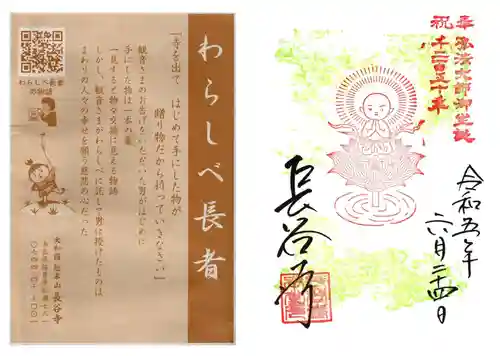 わらしべ長者
「寺を出て はじめて手にした物が
贈り物だから持っていきなさい」
観音さまのお告げをいただいた男がはじめに
手にした物は一本の藁
一見すると物々交換に見える物語
しかし、観音さまがわらしべに託して男に授けたものは
まわりの人々の幸せを願う慈悲の心だった
わらしべ長者
の物語
大和国 総本山 長谷寺
奉 弘法大師御生誕
祝 千二百五十年
長谷寺
令和五年
六月二十四日